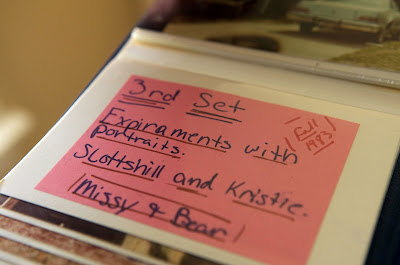 3rd Set
Expiraments with
portraits.
(Fall
1993)
Slottshill and Kristie.
/Missy & Bear/